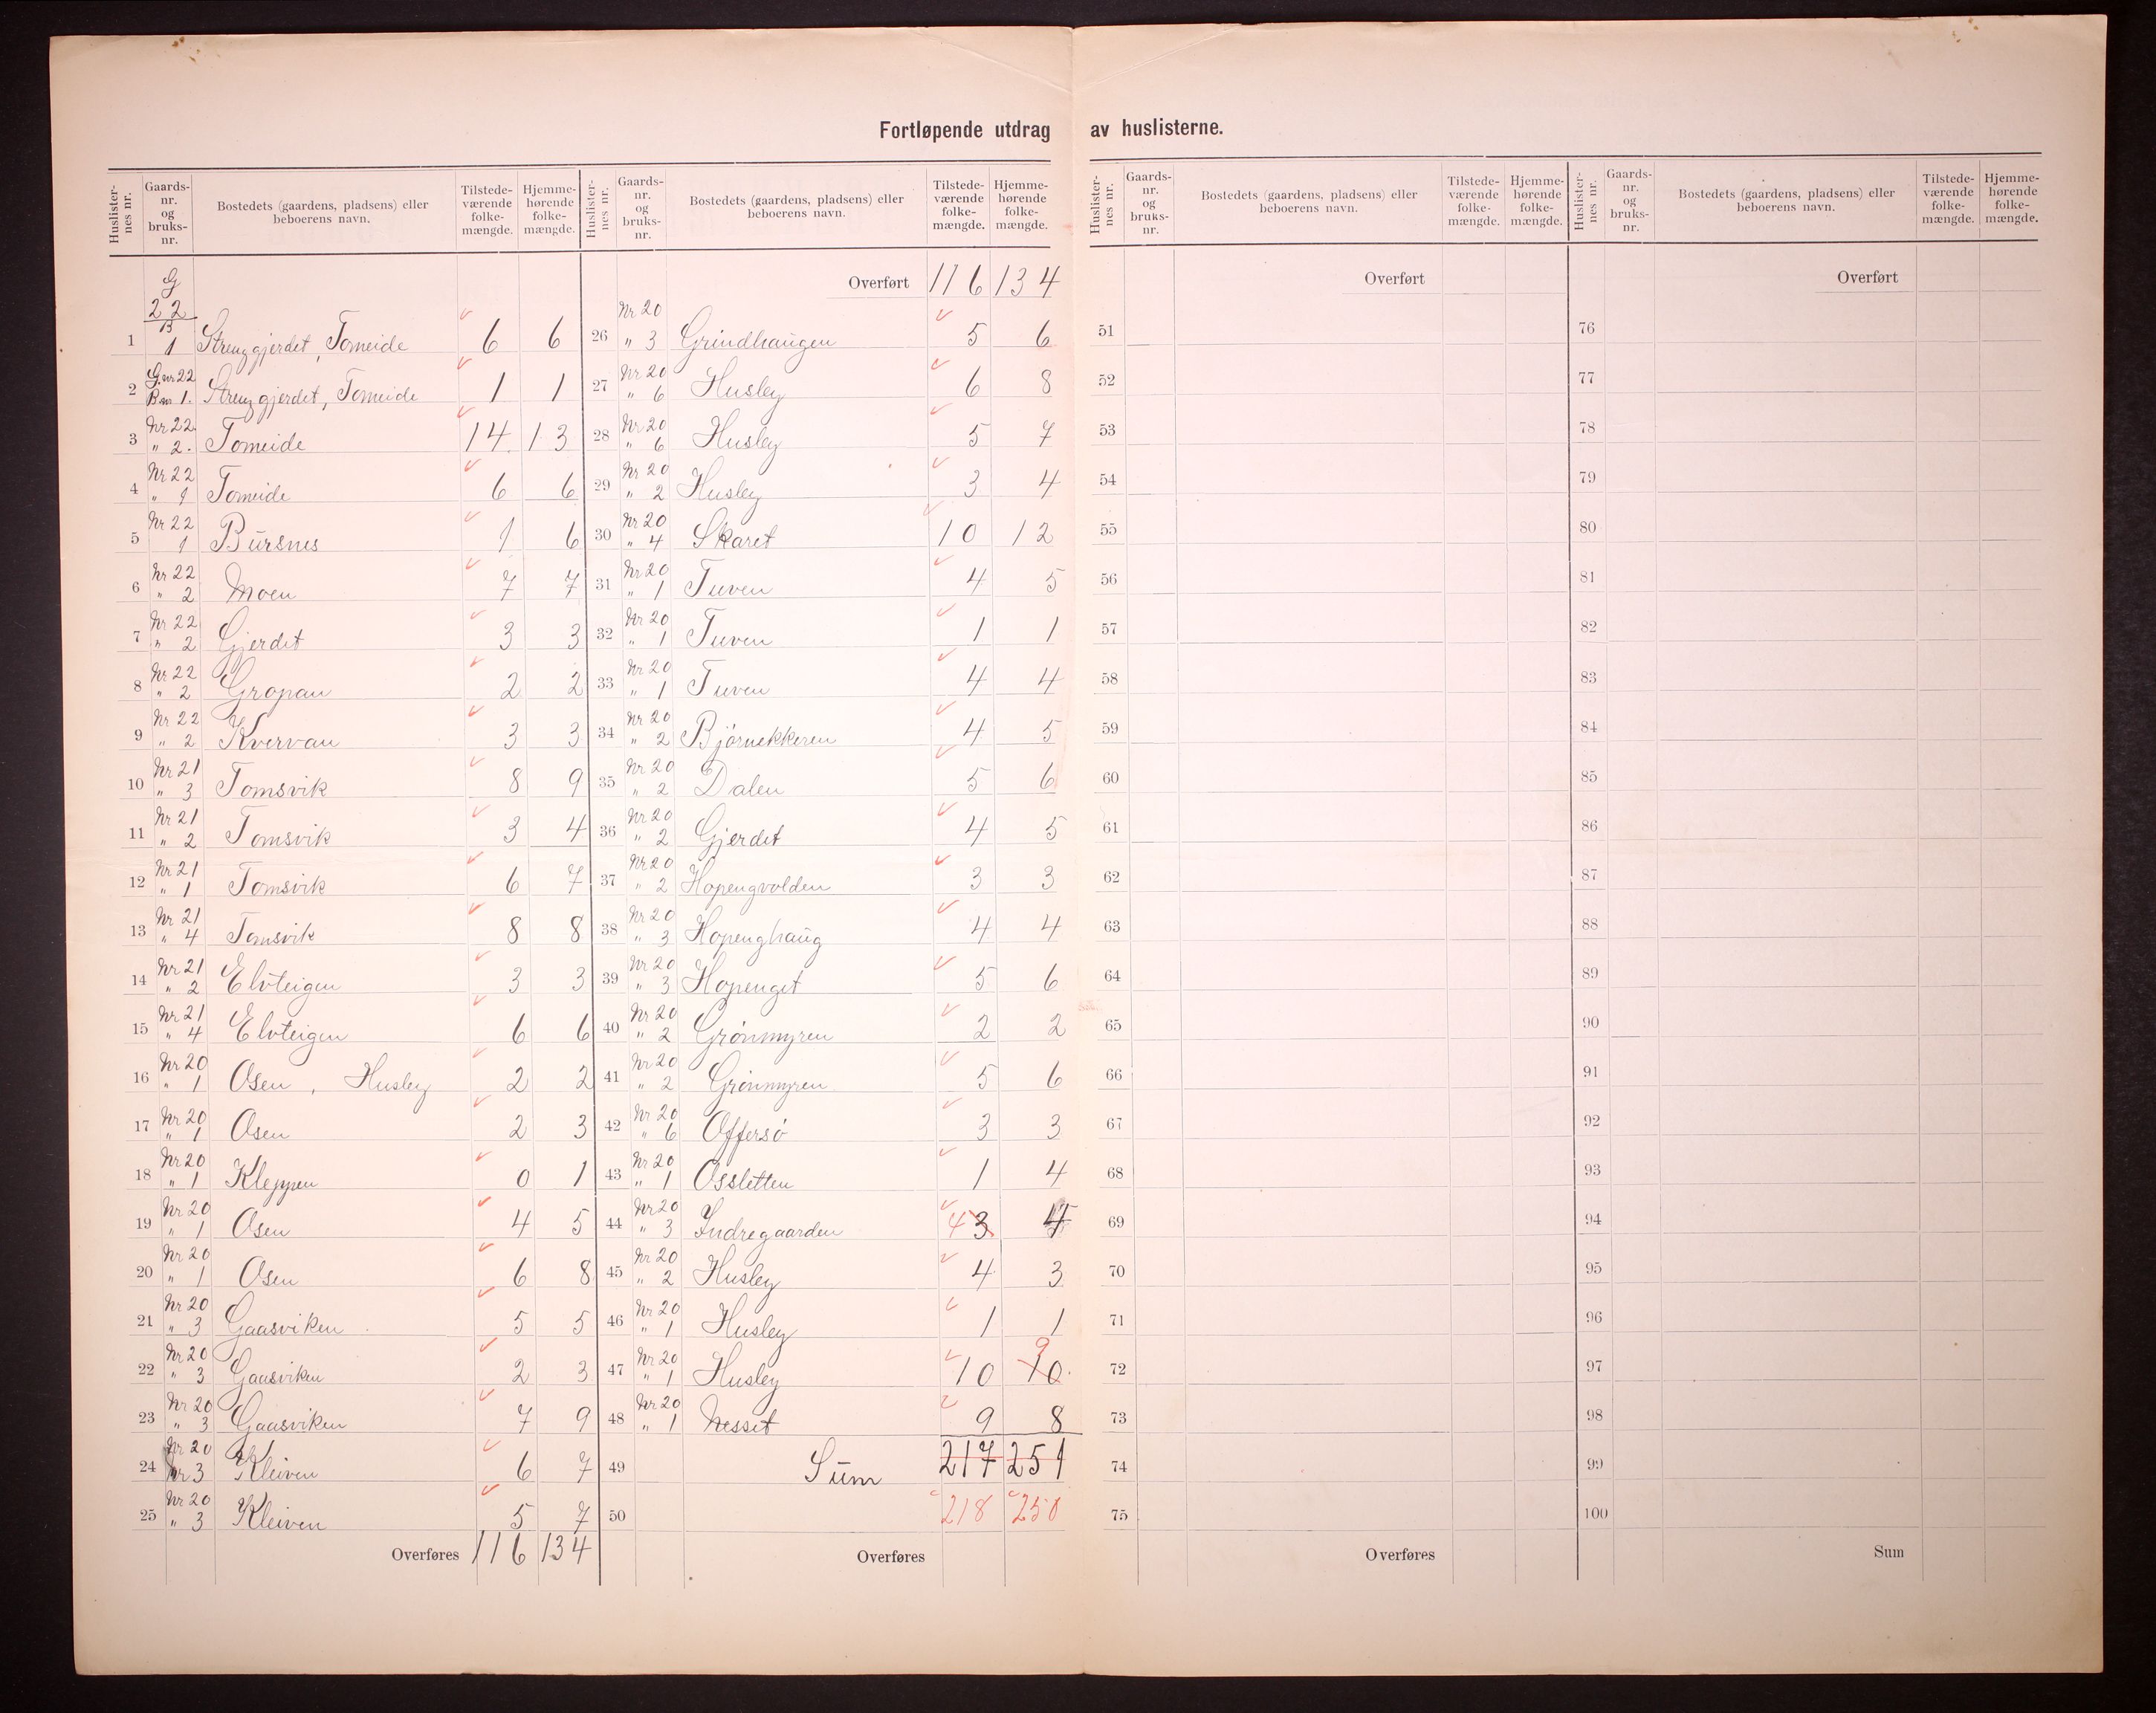 Fortløpende utdrag av huslisterne.
Huslisternes nr. Gaards-nr. og bruks-nr. Bostedets (gaardens, pladsens) eller beboerens navn. Tilstede-værende folke-mængde. Hjemme-hørende folke-mængde.
G 22
1 B 1 Strenggjerdet, Tomeide 6 6
2 G.nr 22 B.nr 1. Strenggjerdet, Tomeide 1 1
3 Nr 22. " 2. Tomeide 14 13
4 Nr 22 " 1 Tomeide 6 6
5 Nr 22 1 Bursnes 1 6
6 Nr 22 " 2 Moen 7 7
7 Nr 22 " 2 Gjerdet 3 3
8 Nr 22 " 2 Gropan 2 2
9 Nr 22 " 2 Kvervan 3 3
10 Nr 21 " 3 Tomsvik 8 9
11 Nr 21 " 2 Tomsvik 3 4
12 Nr 21 " 1 Tomsvik 6 7
13 Nr 21 " 4 Tomsvik 8 8
14 Nr 21 " 2 Elvteigen 3 3
15 Nr 21 " 4 Elvteigen 6 6
16 Nr 20 " 1 Osen, Husley 2 2
17 Nr 20 " 1 Osen 2 3
18 Nr 20 " 1 Kleppen 0 1
19 Nr 20 " 1 Osen 4 5
20 Nr 20 " 1 Osen 6 8
21 Nr 20 " 3 Gaasviken 5 5
22 Nr 20 " 3 Gaasviken 2 3
23 Nr 20 " 3 Gaasviken 7 9
24 Nr 20 Nr 3 Kleiven 6 7
25 Nr 20 " 3 Kleiven 5 7
Overføres 116 134
Huslisternes nr. Gaards-nr. og bruks-nr. Bostedets (gaardens, pladsens) eller beboerens navn. Tilstede-værende folke-mængde. Hjemme-hørende folke-mængde.
Overført 116 134
26 Nr 20 " 3 Grindhaugen 5 6
27 Nr 20 " 6 Husley 6 8
28 Nr 20 " 6 Husley 5 7
29 Nr 20 " 2 Husley 3 4
30 Nr 20 " 4 Skaret 10 12
31 Nr 20 " 1 Tuven 4 5
32 Nr 20 " 1 Tuven 1 1
33 Nr 20 " 1 Tuven 4 4
34 Nr 20 " 2 Bjørnekkeren 4 5
35 Nr 20 " 2 Dalen 5 6
36 Nr 20 " 2 Gjerdet 4 5
37 Nr 20 " 2 Hopengvolden 3 3
38 Nr 20 " 3 Hopenghaug 4 4
39 Nr 20 " 3 Hopenget 5 6
40 Nr 20 " 2 Grønmyren 2 2
41 Nr 20 " 2 Grønmyren 5 6
42 Nr 20 " 6 Offersø 3 3
43 Nr 20 " 1 Ossletten 1 4
44 Nr 20 " 3 Indregaarden 4 3 4
45 Nr 20 " 2 Husley 4 3
46 Nr 20 " 1 Husley 1 1
47 Nr 20 " 1 Husley 10 10. 9
48 Nr 20 " 1 Nesset 9 8
49 Sum 217 251
50 218 250
Overføres
Huslisternes nr. Gaards-nr. og bruks-nr. Bostedets (gaardens, pladsens) eller beboerens navn. Tilstede-værende folke-mængde. Hjemme-hørende folke-mængde.
Overført
51
52
53
54
55
56
57
58
59
60
61
62
63
64
65
66
67
68
69
70
71
72
73
74
75
Overføres
Huslisternes nr. Gaards-nr. og bruks-nr. Bostedets (gaardens, pladsens) eller beboerens navn. Tilstede-værende folke-mængde. Hjemme-hørende folke-mængde.
Overført
76
77
78
79
80
81
82
83
84
85
86
87
88
89
90
91
92
93
94
95
96
97
98
99
100
Sum